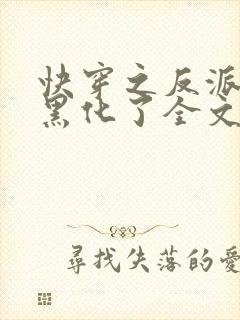 快穿之反派
黑化了全文
尋找失落的愛